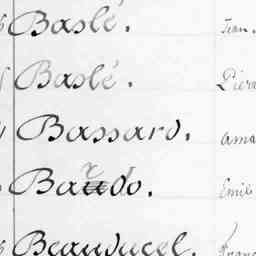 Baslé. Jean
Baslé. Pierr
Bassard. Ama
Bardo. Emile
Beauducel. Franç